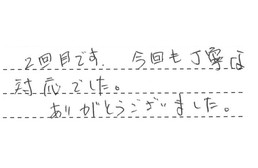 2回目です. 今回も丁寧な
対応でした。
ありがとうございました。